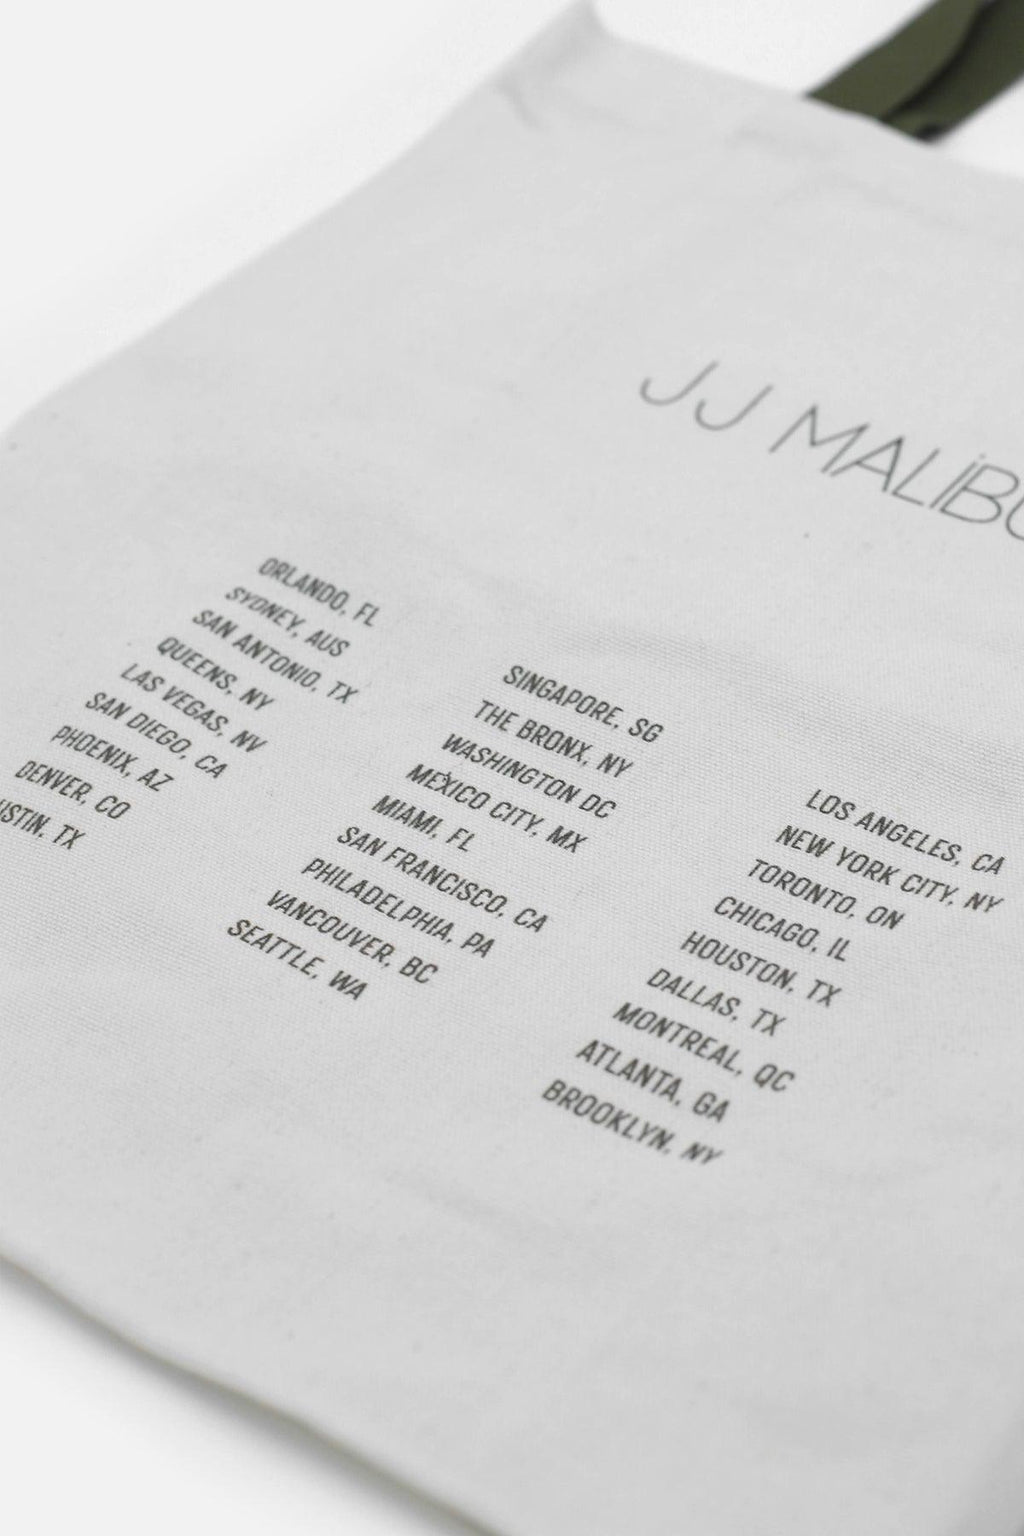 JJ MALİBU
ORLANDO, FL
SYDNEY, AUS
SAN ANTONIO, TX
QUEENS, NY
LAS VEGAS, NV
SAN DIEGO, CA
PHOENIX, AZ
DENVER, CO
USTIN, TX
SINGAPORE, SG
THE BRONX, NY
WASHINGTON DC
MEXICO CITY, MX
MIAMI, FL
SAN FRANCISCO, CA
PHILADELPHIA, PA
VANCOUVER, BC
SEATTLE, WA
LOS ANGELES, CA
NEW YORK CITY, NY
TORONTO, ON
CHICAGO, IL
HOUSTON, TX
DALLAS, TX
MONTREAL, QC
ATLANTA, GA
BROOKLYN, NY